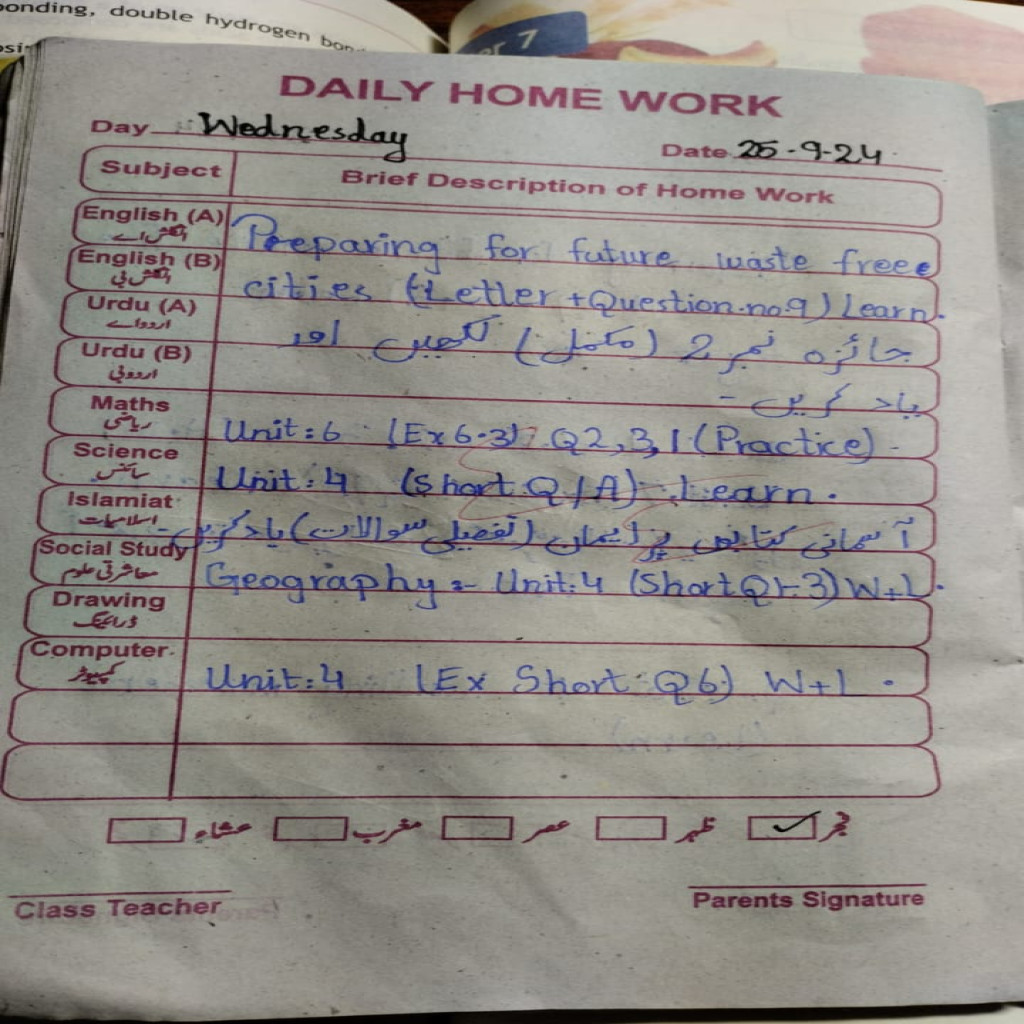 onding, double hydrogen bon
er 7
DAILY HOME WORK
Day Wednesday Date 25-9-24
Subject Brief Description of Home Work
English (A) Preparing for future waste free
انگلش اے
English (B) cities (Letter + Question.no.9) Learn.
انگلش بی
Urdu (A) جائزہ نمبر 2 (مکمل) لکھیں اور
اردو اے
Urdu (B) یاد کریں -
اردو بی
Maths Unit:6 (Ex 6.3) Q2,3,1 (Practice) -
ریاضی
Science Unit:4 (Short Q/A) Learn.
سائنس
Islamiat آسمانی کتابوں پر ایمان (تفصیلی سوالات) یاد کریں -
اسلامیات
Social Study Geography :- Unit:4 (Short Q1-3) W+L.
معاشرتی علوم
Drawing
ڈرائینگ
Computer Unit:4 (Ex Short Q6) W+L.
کمپیوٹر
فجر ظہر عصر مغرب عشاء
Class Teacher Parents Signature